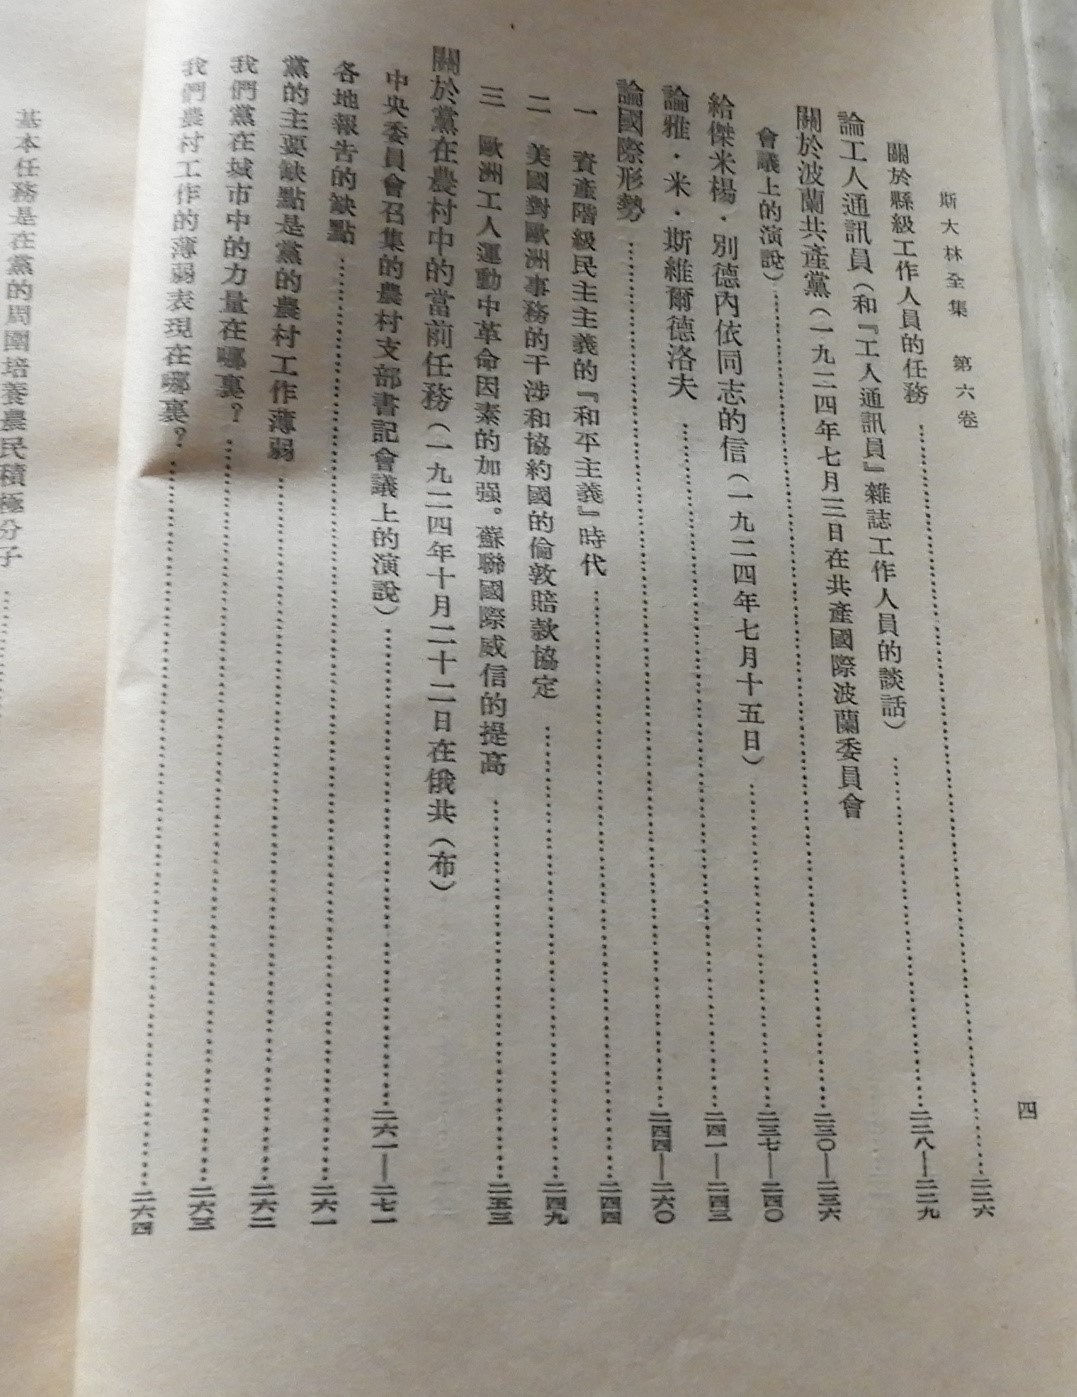 斯大林全集　第六卷
四
關於縣級工作人員的任務……二二六
論工人通訊員（和『工人通訊員』雜誌工作人員的談話）……二二八——二二九
關於波蘭共產黨（一九二四年七月三日在共產國際波蘭委員會
會議上的演說）……二三〇——二三六
給傑米楊·別德內依同志的信（一九二四年七月十五日）……二三七——二四〇
論雅·米·斯維爾德洛夫……二四一——二四三
論國際形勢……二四四——二六〇
一　資產階級民主主義的『和平主義』時代……二四四
二　美國對歐洲事務的干涉和協約國的倫敦賠款協定……二四九
三　歐洲工人運動中革命因素的加强。蘇聯國際威信的提高……二五三
關於黨在農村中的當前任務（一九二四年十月二十二日在俄共（布）
中央委員會召集的農村支部書記會議上的演說）……二六一——二七一
各地報告的缺點……二六一
黨的主要缺點是黨的農村工作薄弱……二六二
我們黨在城市中的力量在哪裏？……二六三
我們農村工作的薄弱表現在哪裏？……二六四
基本任務是在黨的周圍培養農民積極分子……